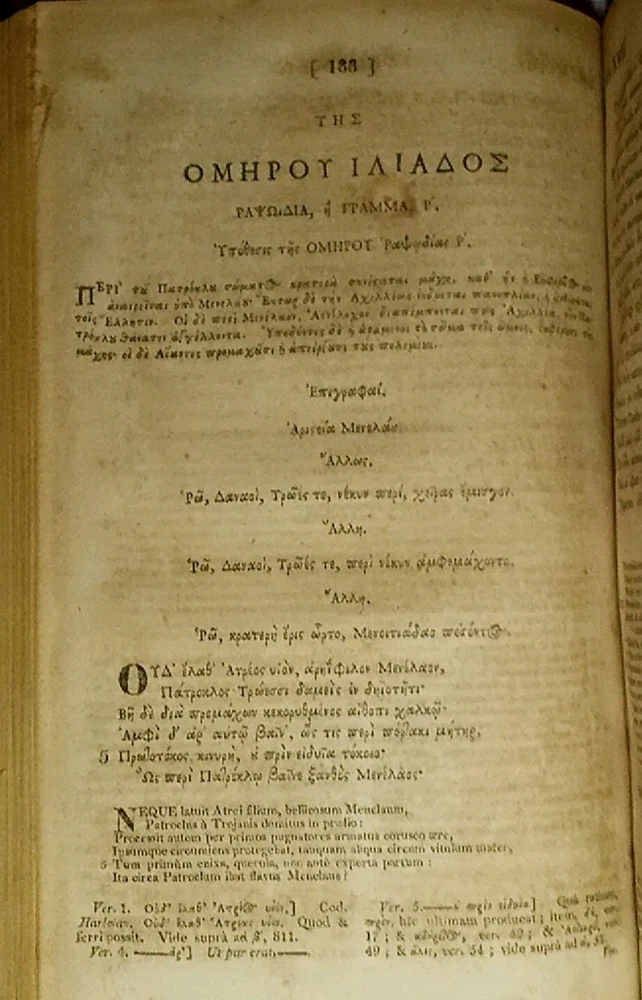 [ 188 ]
ΤΗΣ
ΟΜΗΡΟΥ ΙΛΙΑΔΟΣ
ΡΑΨΩΔΙΑ, ἢ ΓΡΑΜΜΑ, Ρ'.
Ὑπόθεσις τῆς ΟΜΗΡΟΥ Ῥαψῳδίας Ρ'.
ΠΕΡΙ τοῦ Πατρόκλου σώματος κρατερὰ συνίσταται μάχη, καθ' ἣν ὁ Εὔφορβος
ἀναιρεῖται ὑπὸ Μενελάου· Ἕκτωρ δὲ τὴν Ἀχιλλέως ἐνδύεται πανοπλίαν,
τοῖς Ἕλλησιν. Οἱ δὲ περὶ Μενέλαον, Ἀντίλοχον διαπέμπονται πρὸς Ἀχιλλέα,
τρόκλου θάνατον ἀγγέλλοντα. Ὑποδύντες δὲ ἢ ἀράμενοι τὸ σῶμα τοῖς ὤμοις,
μάχης· οἱ δὲ Αἴαντες προμαχοῦσι ἢ ἀπείργουσι τοὺς πολεμίους.
Ἐπιγραφαί.
Ἀριστεία Μενελάου.
Ἄλλως.
Ῥῶ, Δαναοὶ, Τρῶές τε, νέκυν περὶ, χεῖρας ἔμισγον.
Ἄλλη.
Ῥῶ, Δαναοὶ, Τρῶές τε, περὶ νέκυν ἀμφεμάχοντο.
Ἄλλη.
Ῥῶ, κρατερὴ ἔρις ὦρτο, Μενοιτιάδαο πεσόντος.
ΟΥΔ' ἔλαθ' Ἀτρέος υἱὸν, ἀρηΐφιλον Μενέλαον,
Πάτροκλος Τρώεσσι δαμεὶς ἐν δηϊοτῆτι·
Βῆ δὲ διὰ προμάχων κεκορυθμένος αἴθοπι χαλκῷ·
Ἀμφὶ δ' ἄρ' αὐτῷ βαῖν', ὥς τις περὶ πόρτακι μήτηρ,
5 Πρωτοτόκος, κινυρὴ, οὐ πρὶν εἰδυῖα τόκοιο·
Ὣς περὶ Πατρόκλῳ βαῖνε ξανθὸς Μενέλαος·
NEQUE latuit Atrei filium, bellicosum Menelaum,
Patroclus à Trojanis domitus in prælio:
Processit autem per primos pugnatores armatus corusco ære,
Ipsumque circumiens protegebat, tanquam aliqua circum vitulum mater,
5 Tum primùm enixa, querula, non antè experta partum:
Ita circa Patroclum ibat flavus Menelaus:
Ver. 1. Οὐδ' ἔλαθ' Ἀτρέος υἱὸν,] Cod.
Harleian. Οὐδ' ἔλαθ' Ἀτρέως υἱὸν. Quod &
ferri possit. Vide suprà ad β', 811.
Ver. 4. —— ἄρ'] Ut par erat.
Ver. 5. —— οὐ πρὶν εἰδυῖα] Quâ ratione,
πρὶν, hîc ultimam producat; item,
17; & ver. 42; &
49; & ἅλις, ver. 54; vide suprà ad ά, 51.